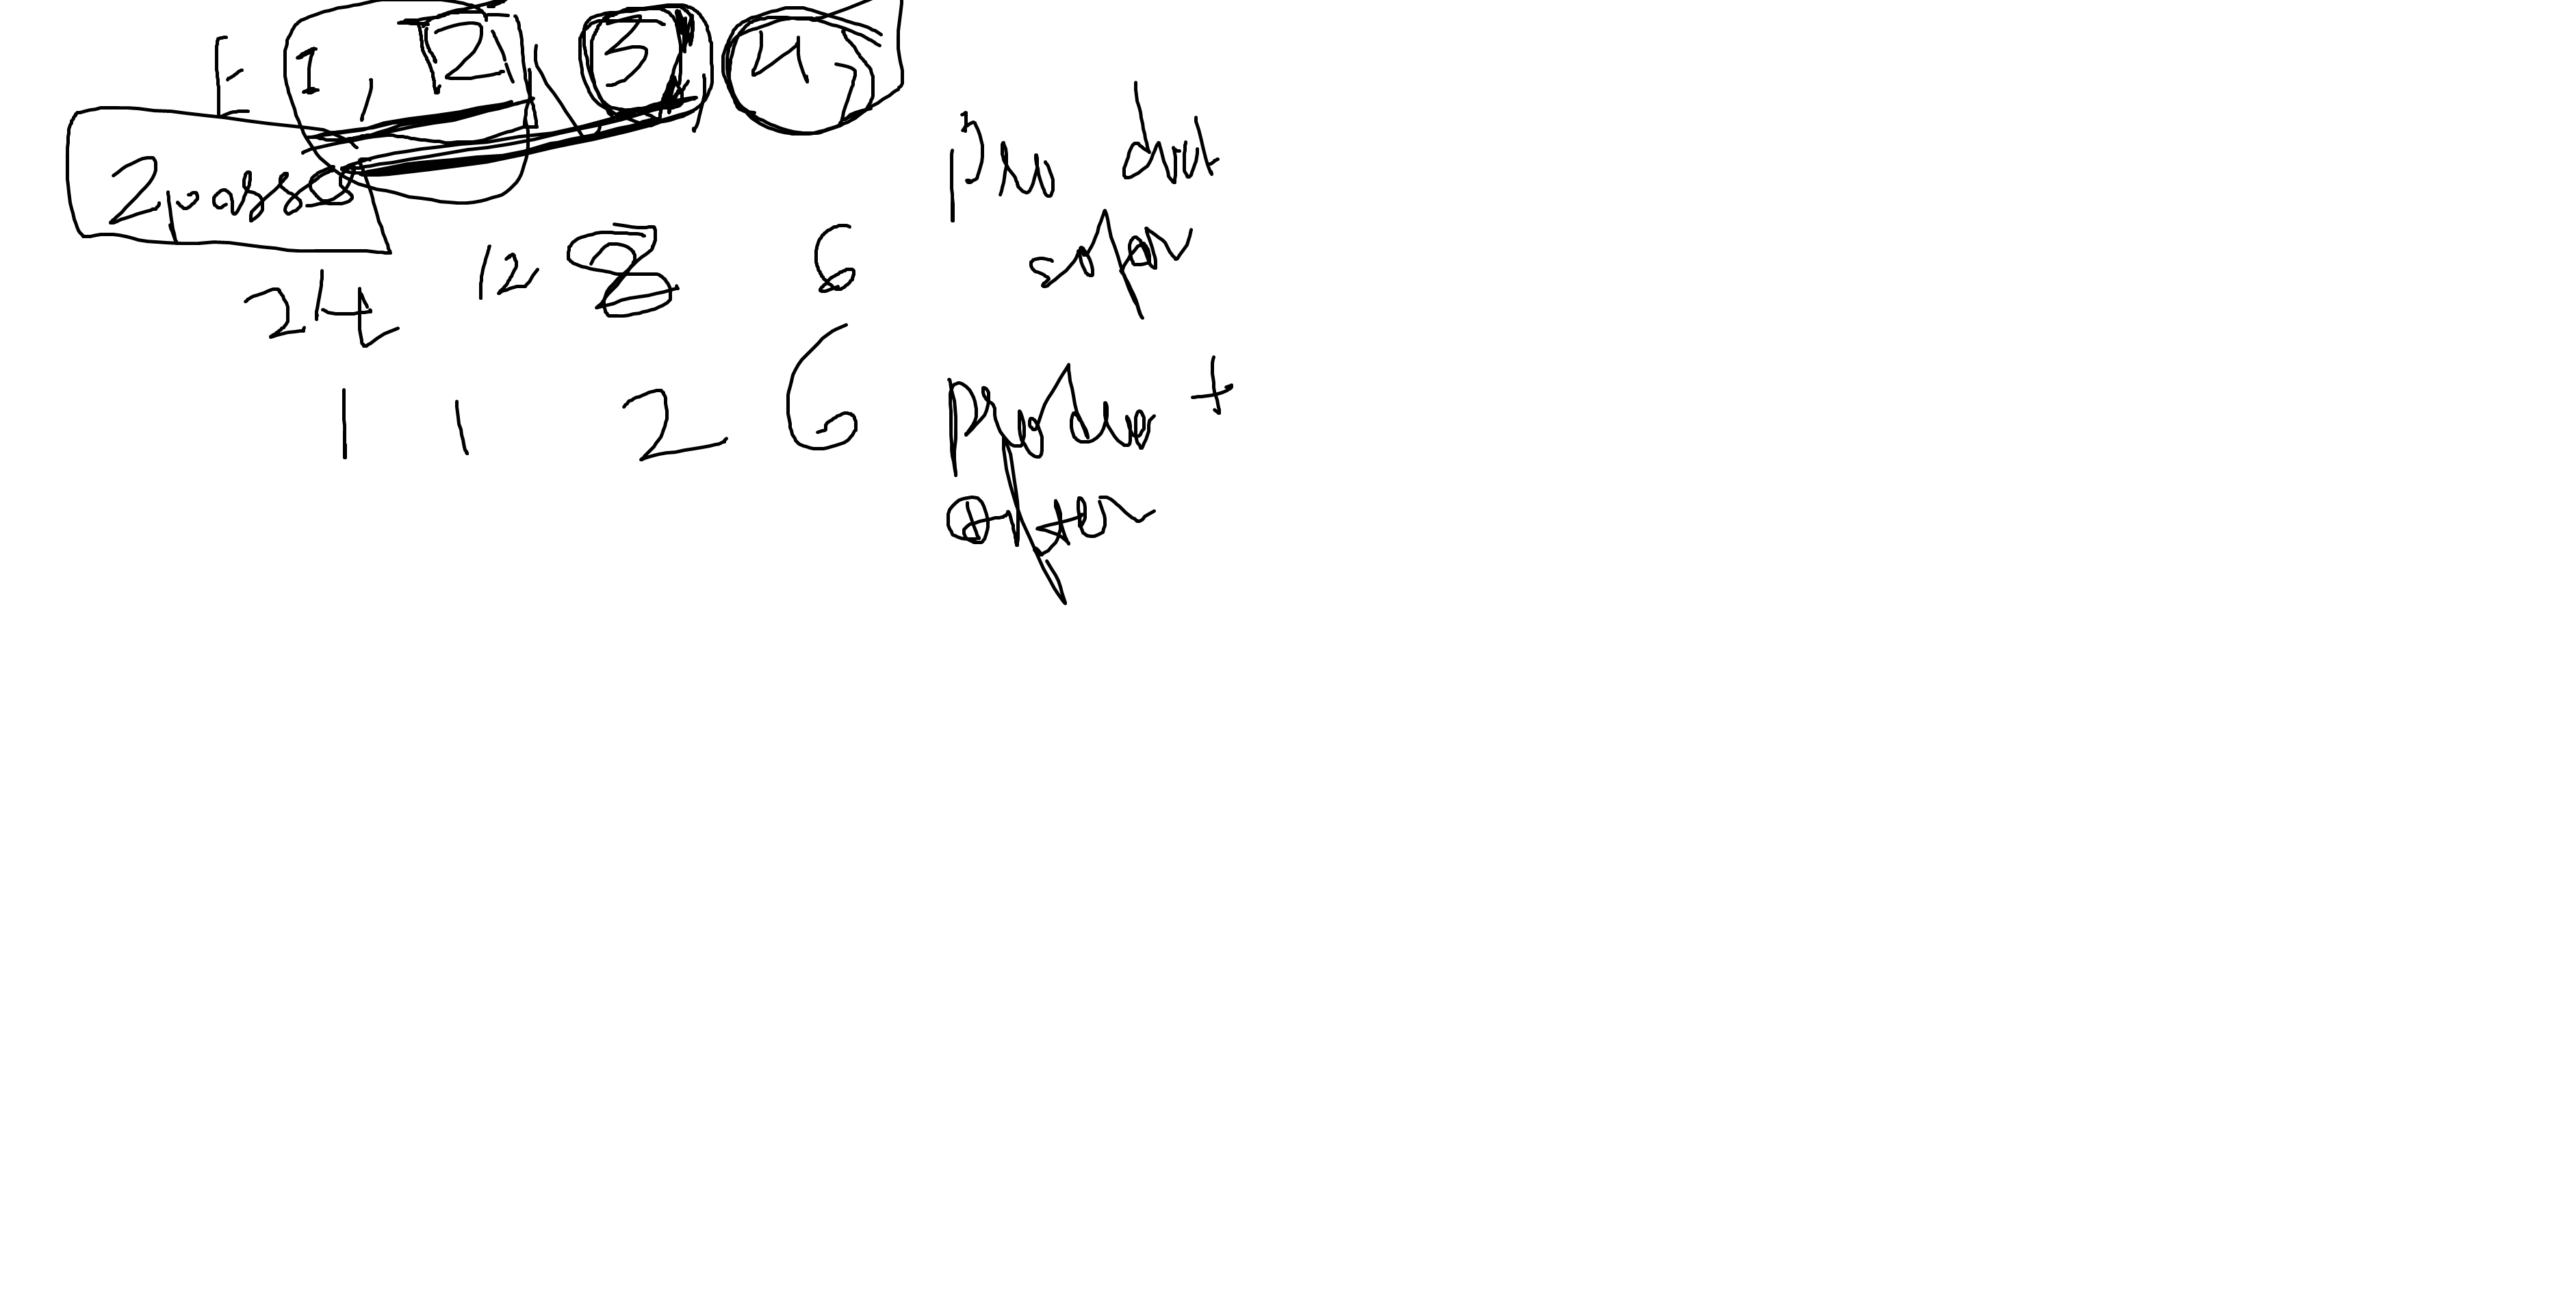 [ 1, 2, 3, 4 ]
2 passes
24 12 8 6
Product
sofar
1 1 2 6
Product
after